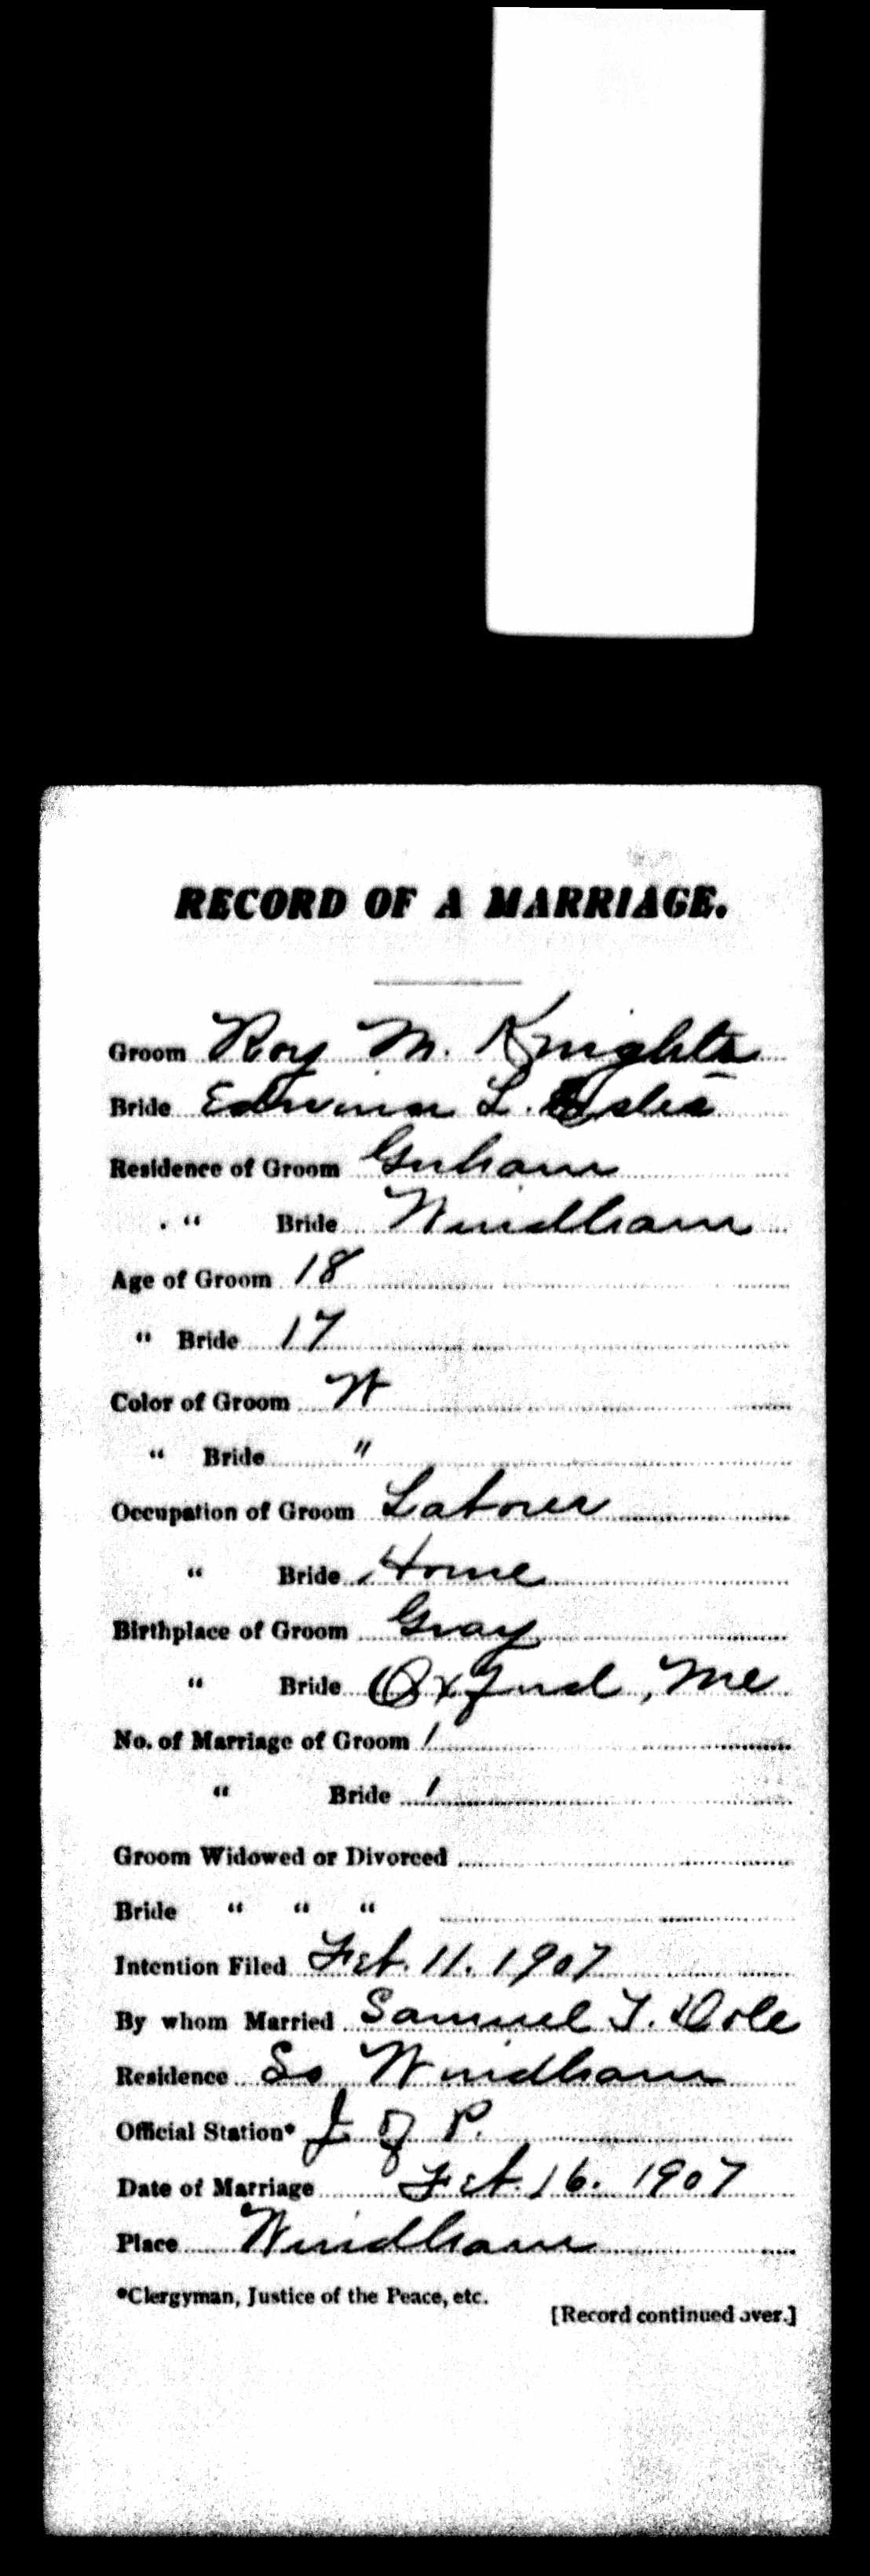 RECORD OF A MARRIAGE.
Groom Roy M. Knights
Bride Edwina L.
Residence of Groom Gorham
" Bride Windham
Age of Groom 18
" Bride 17
Color of Groom W
" Bride "
Occupation of Groom Laborer
" Bride Home
Birthplace of Groom Gray
" Bride Oxford, Me
No. of Marriage of Groom 1
" Bride 1
Groom Widowed or Divorced
Bride " " "
Intention Filed Feb. 11. 1907
By whom Married Samuel T. Dole
Residence So Windham
Official Station* J of P.
Date of Marriage Feb. 16. 1907
Place Windham
*Clergyman, Justice of the Peace, etc.
[Record continued over.]